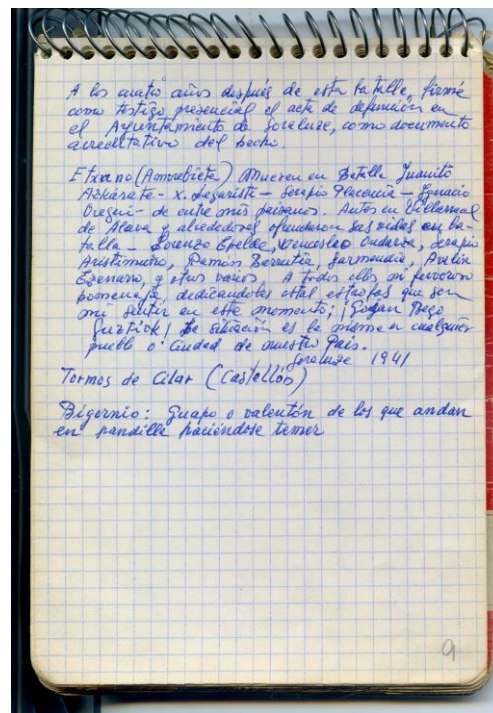 A los cuatro años después de esta batalla, firmé
como testigo presencial el acta de defunción en
el Ayuntamiento de Soraluze, como documento
acreditativo del hecho.
Etxano (Amorebieta) Mueren en Batalla Juanito
Azkárate - X. Legariste - Serapio Placencia - Ignacio
Oregui - de entre mis paisanos. Antes en Villarreal
de Alava y alrededores ofrendaron sus vidas en ba-
talla - Lorenzo Epelde, Wenceslao Ondarra, Serapio
Aristimuño, Ramón Berrutia, Garmendia, Avelin
y otros varios. A todos ellos mi fervoroso
dedicandoles estas estrofas que son
mi sentir en este momento; ¡Gogan Bego
Guztiok! La situación es la misma en cualquier
pueblo o Ciudad de nuestro País.
Soraluze 1941
Tormos de Cilar (Castellón)
Bigornio: Guapo o valentón de los que andan
en pandilla haciéndose temer
9